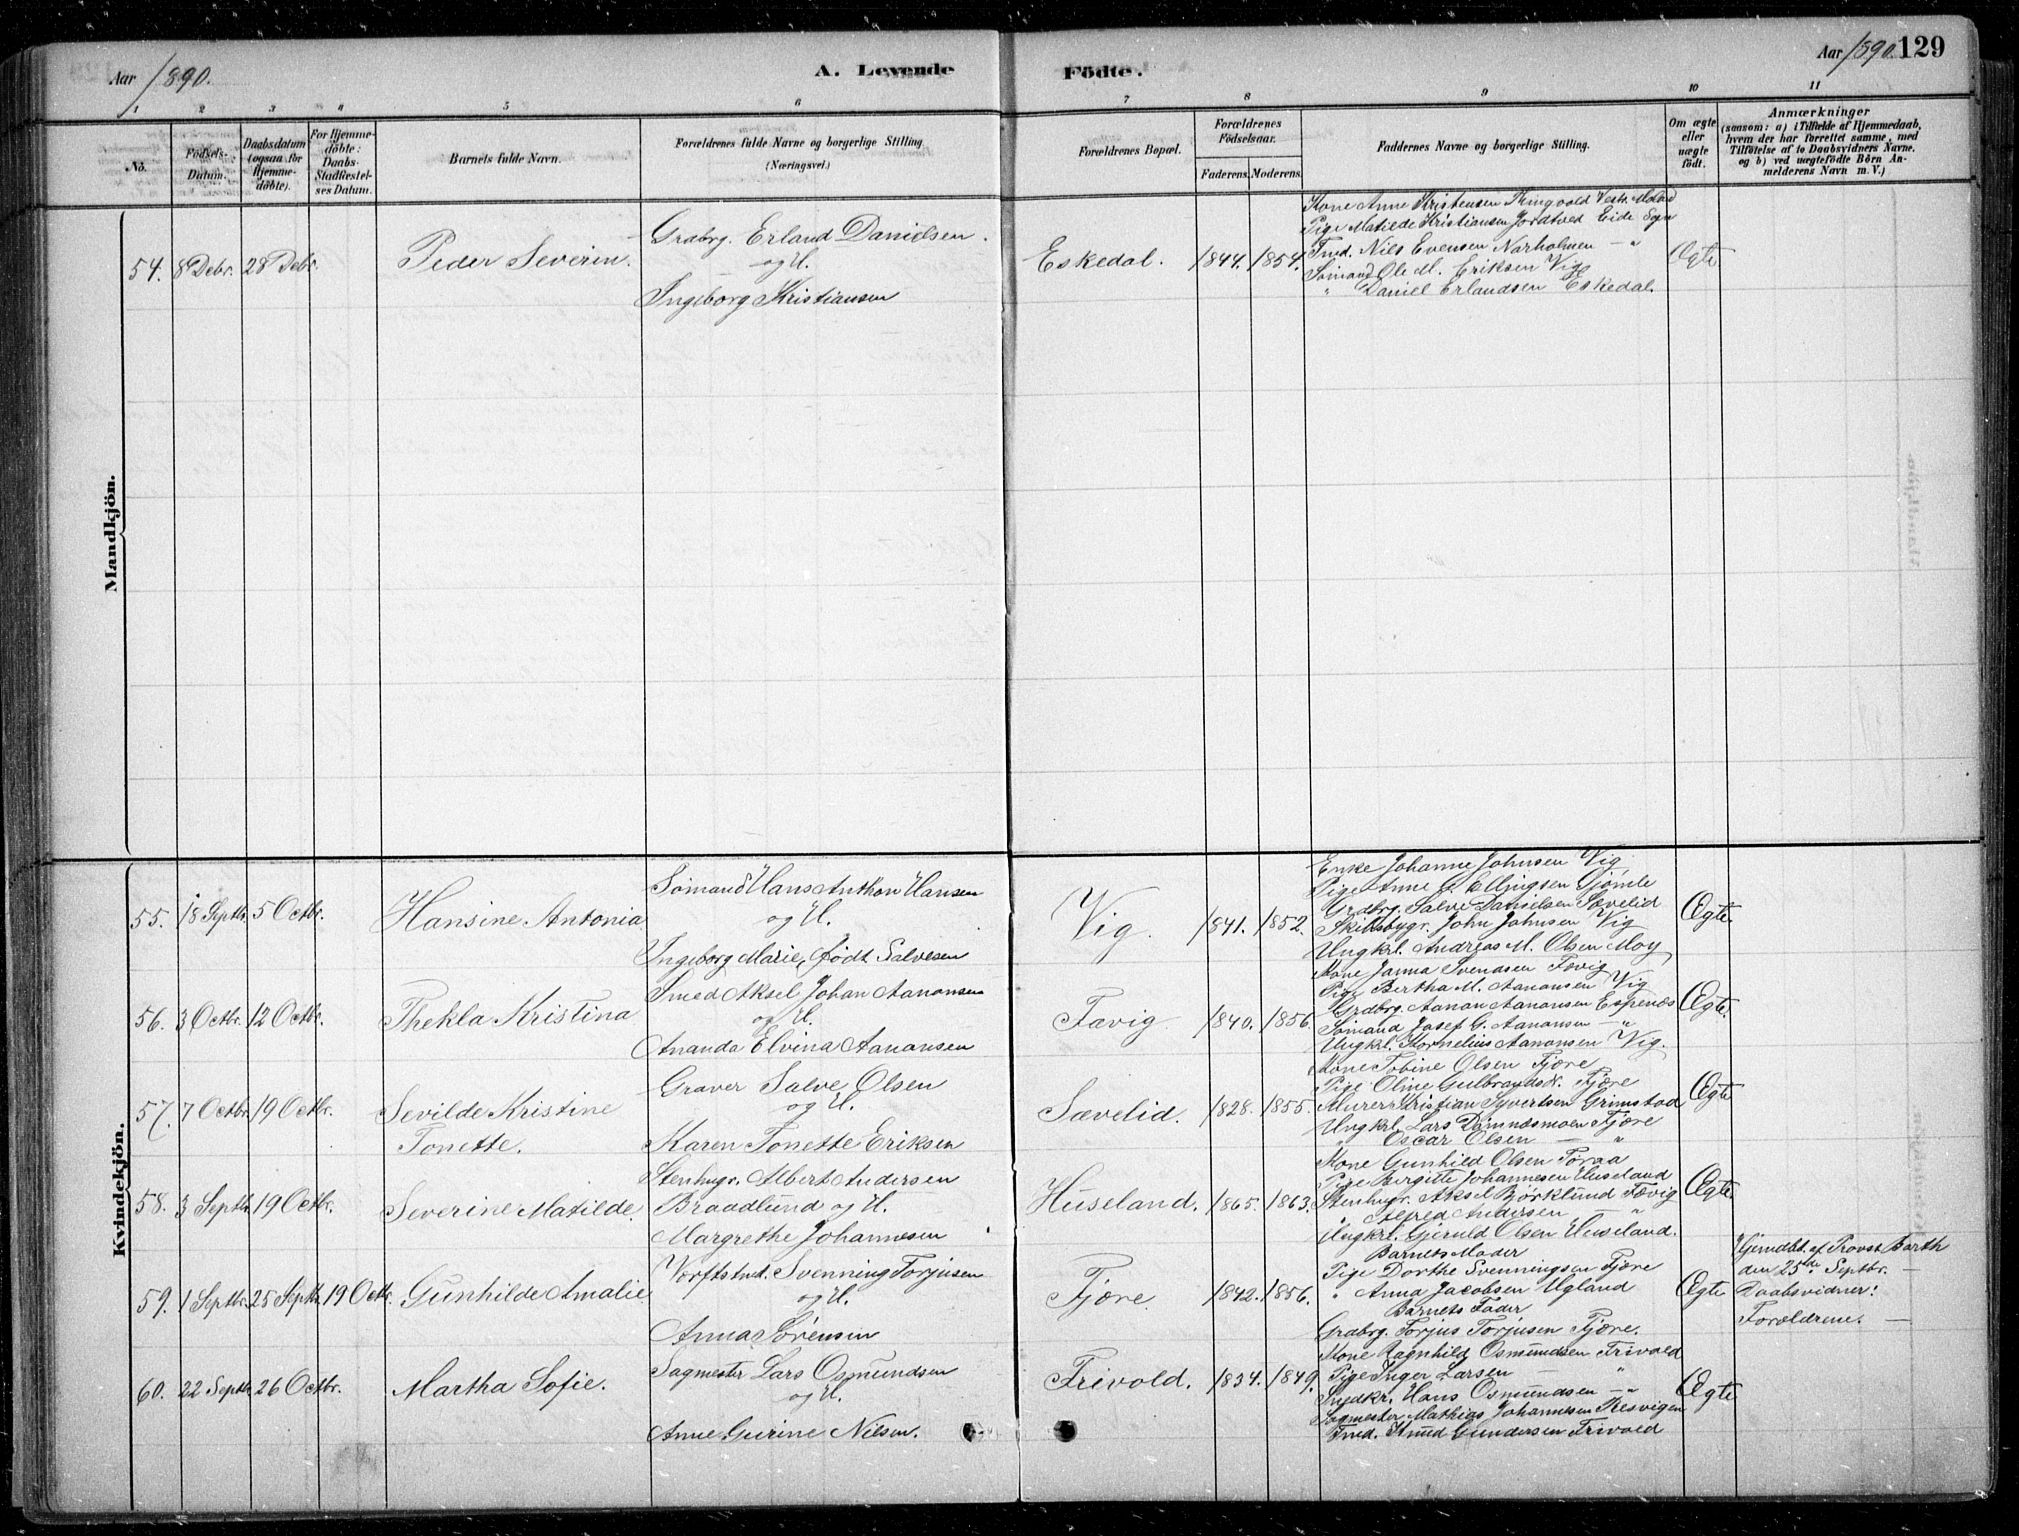 Aar 1890.
A. Levende Födte.
Aar 1890. 129
1 2 3 4 5 6 7 8 9 10 11
No.
Födsels-Datum.
Daabsdatum (ogsaa for Hjemmedöbte).
For Hjemmedöbte: Daabs-Stadfæstelses Datum.
Barnets fulde Navn.
Forældrenes fulde Navne og borgerlige Stilling. (Næringsvei.)
Forældrenes Bopæl.
Forældrenes Födselsaar.
Faderens. Moderens.
Faddernes Navne og borgerlige Stilling.
Om ægte eller uægte födt.
Anmærkninger
(saasom: a) i Tilfælde af Hjemmedaab, hvem der har forrettet samme, med Tilföielse af to Daabsvidners Navne, og b) ved uægtefödte Börn Anmelderens Navn m. V.)
Mandkjön.
54. 8 Debr. 28 Debr. Peder Severin.
Grdbrg. Erland Danielsen
og H.
Ingeborg Kristiansen
Eskedal. 1844. 1854.
Kone Anne Kristensen Ringvold Vestr. Moland
Pige Matilde Kristiansen Jordtved Eide Sogn
Tmd. Nils Evensen Narholmen — "
Sömand Ole M. Eriksen Vig
" Daniel Erlandsen Eskedal.
Ægte
Kvindekjön.
55. 18 Septbr. 5 Octbr. Hansine Antonia
Sömand Hans Anthon Hansen
og H.
Ingeborg Marie, födt Salvesen
Vig. 1841. 1852.
Enke Johanne Johnsen Vig
Pige Anne Ellingsen Gjömle
Grdbrg. Salve Danielsen Sævelid
Skibsbygr. John Johnsen Vig
Ungkrl. Andreas M. Olsen Moy
Ægte
56. 3 Octbr. 12 Octbr. Thekla Kristina
Smed Aksel Johan Aanonsen
og H.
Ananda Elvina Aanonsen
Favig 1840. 1856.
Kone Janna Svendsen Favig
Pige Bertha M. Aanonsen Vig
Grdbrg. Aanon Aanonsen Espenæs
Sömand Josef G. Aanonsen — "
Ungkrl. Kornelius Aanonsen Vig.
Ægte.
57. 7 Octbr. 19 Octbr. Sevilde Kristine
Tonette.
Graver Salve Olsen
og H.
Karen Tonette Eriksen
Sævelid. 1828. 1855.
Kone Tobine Olsen Fjære
Pige Oline Gulbrandsd. Fjære
Murer Kristian Syvertsen Grimstad
Ungkrl. Lars Dömnesmoen Fjære
" Oscar Olsen — "
Ægte
58. 3 Septbr. 19 Octbr. Severine Matilde.
Stenhugr. Albert Andersen
Braadlund og H.
Margrethe Johannesen
Huseland. 1865. 1863.
Kone Gunhild Olsen Foraa
Pige Birgitte Johannesen Huseland
Stenhugr. Aksel Björklund Fævig
" Alfred Andersen — "
Ungkrl. Gjeruld Olsen Huseland.
Ægte
59. 1 Septbr. 25 Septbr. 19 Octbr. Gunhilde Amalie
Værftstmd. Svenning Torjusen
og H.
Anna Sörensen
Fjære. 1842. 1856.
Barnets Moder
Pige Dorthe Svenningsen Fjære
" Anna Jacobsen Ugland
Barnets Fader
Grdbrg. Torjus Torjusen Fjære.
Ægte
Hjemdbt. af Provst Barth
den 25de Septbr. —
Daabsvidner:
Forældrene. —
60. 22 Septbr. 26 Octbr. Martha Sofie.
Sagmester Lars Osmundsen
og H.
Anne Gurine Nilsen.
Frivold. 1834. 1849.
Kone Ragnhild Osmundsen Frivold
Pige Inger Larsen "
Snedkr. Hans Osmundsen — "
Sagmester Mathias Johannesen Resvigen
Tmd. Knud Gundersen Frivold
Ægte